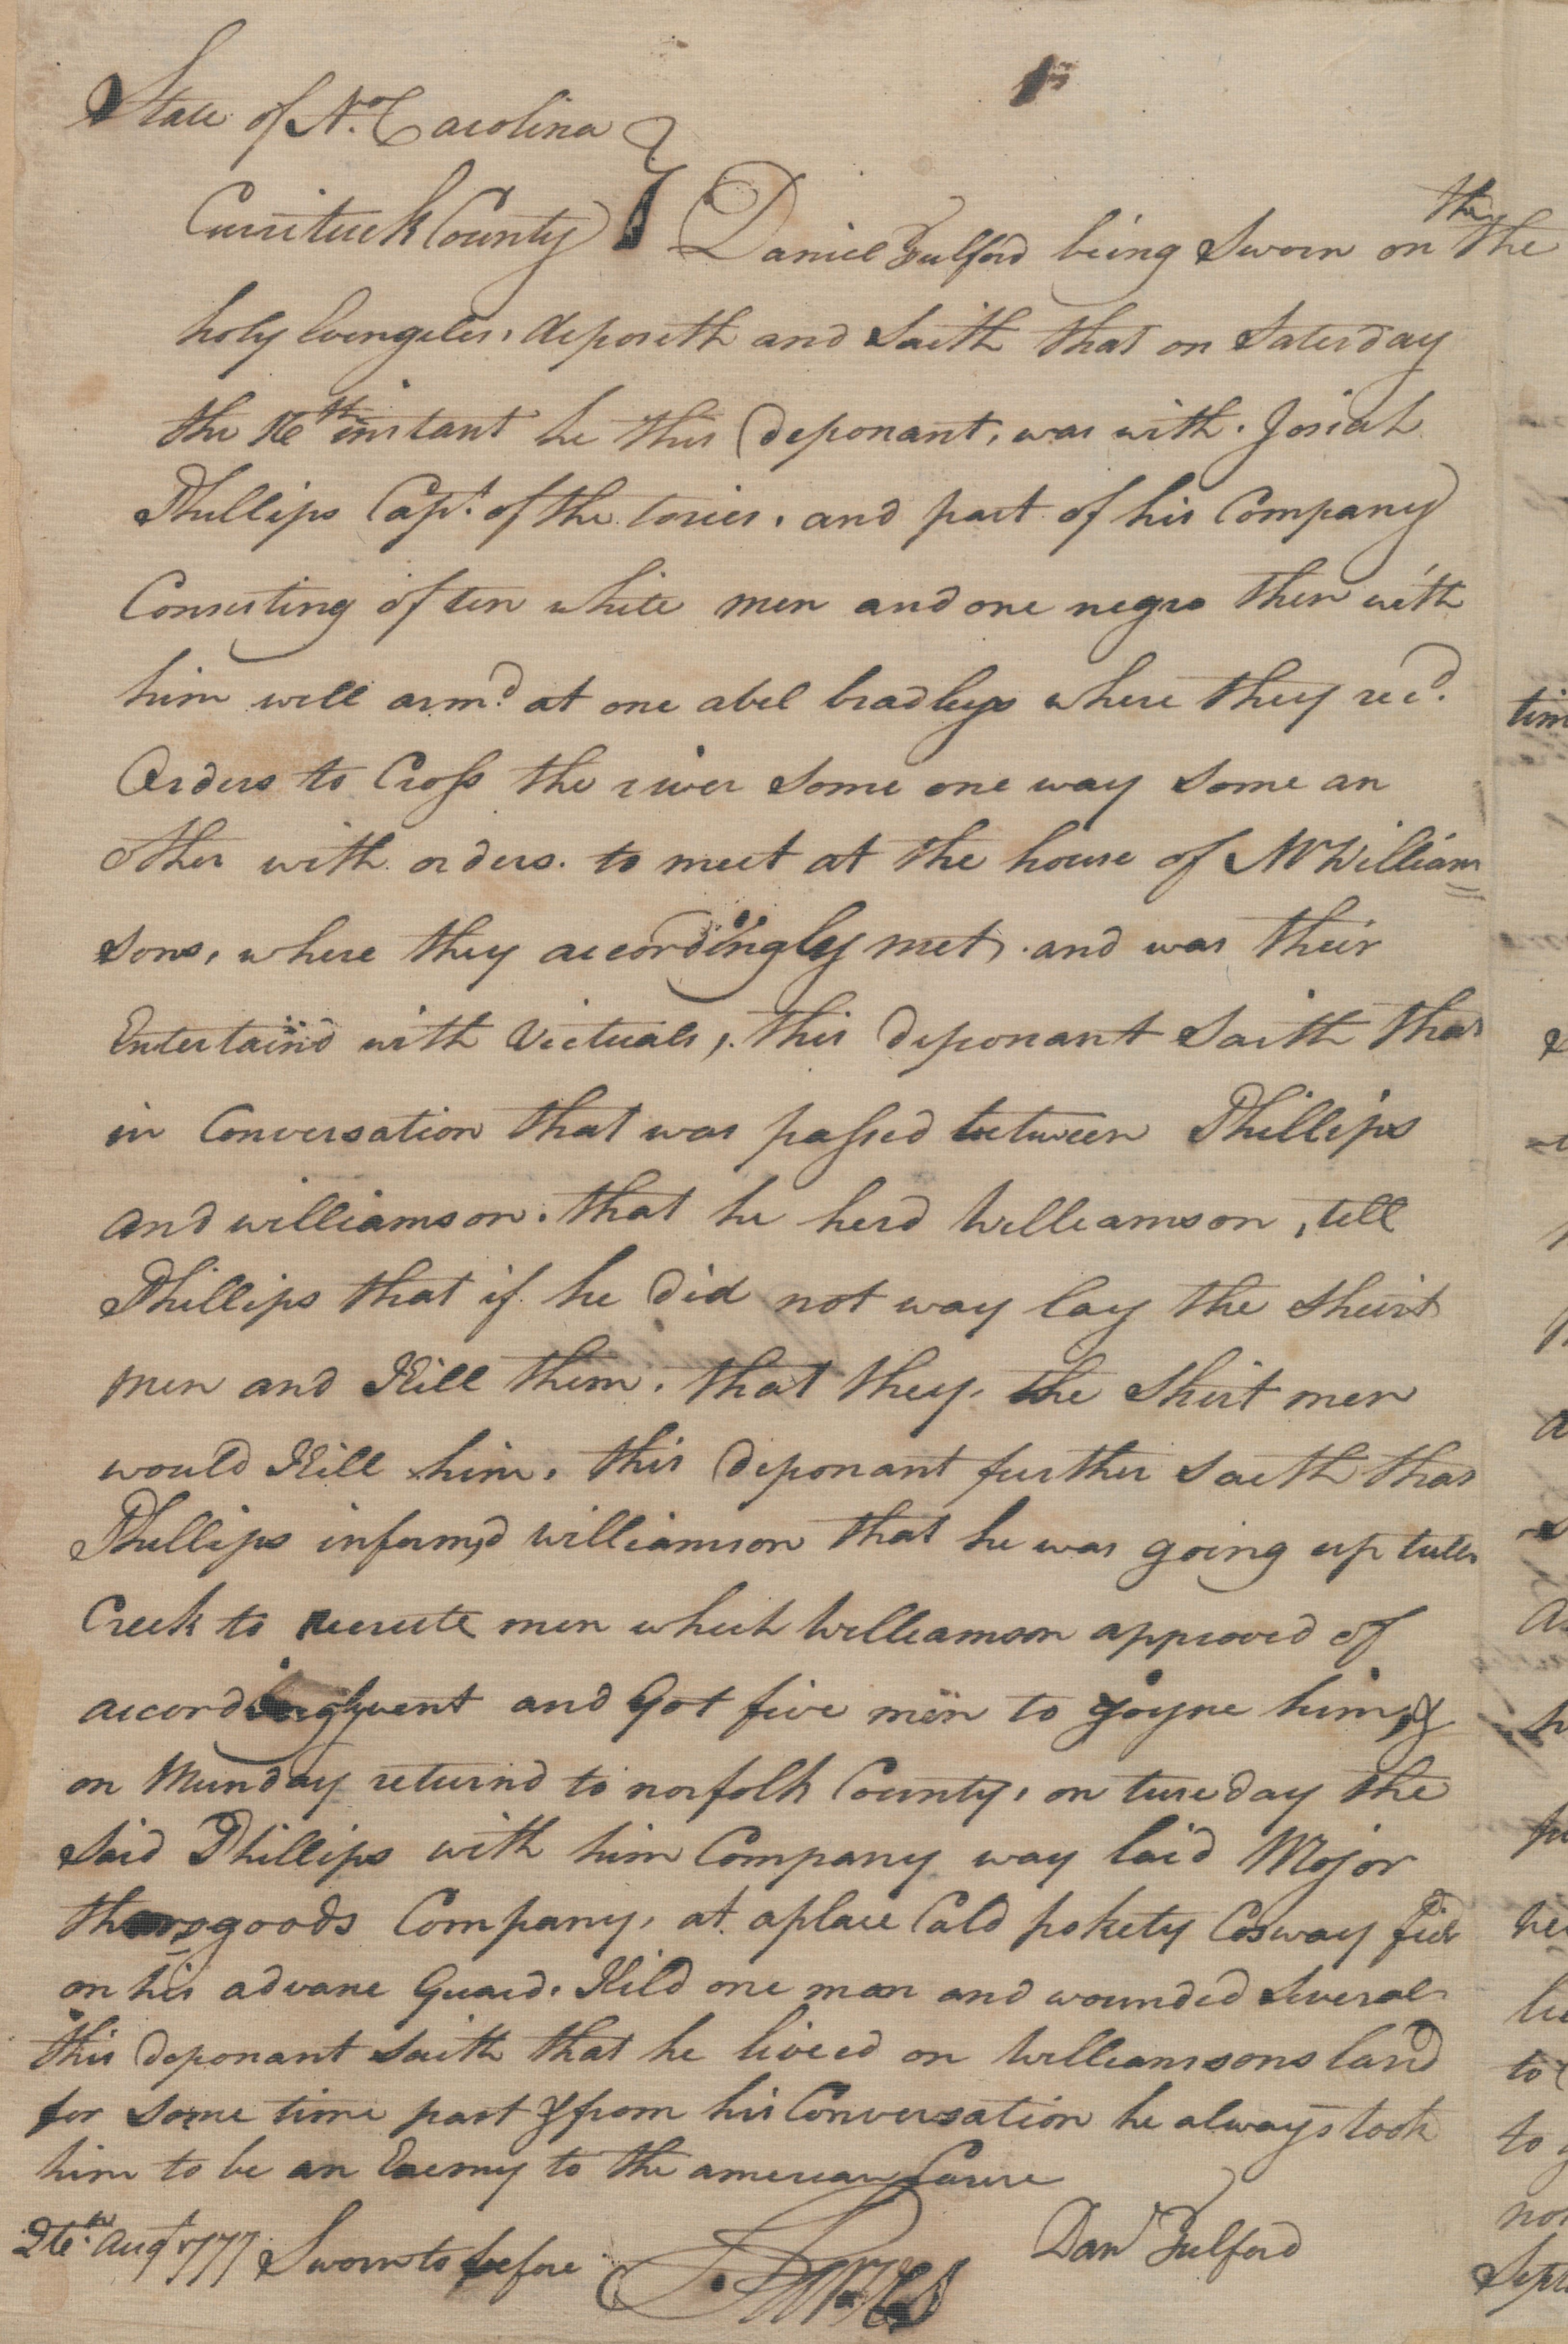 State of No. Carolina
Currituck County } Daniel Fulford being Sworn on the the
holy Evengeles, deposeth and Saith that on Saterday
the 16th instant he this deponant, was with Josiah
Phillips Capt. of the tories, and part of his Company
Consisting of ten white men and one negro then with
him well armd. at one abel bradleys where they recd.
Orders to Cross the river some one way some an
other with orders. to meet at the house of Mr William=
sons, where they accordingly met, and was their
Entertaind with Victuals, this deponant Saith that
in Conversation that was passed between Phillips
and williamson, that he herd Williamson, tell
Phillips that if he did not way lay the Shirt
men and Kill them, that they, the Shirt men
would Kill him, this deponant further Saith that
Phillips informd williamson that he was going up tulls
Creek to recrute men which Williamson approved of
accordingly went and Got five men to joyne him, &
on Munday returnd to norfolk County, on tuseday the
Said Phillips with him Company way laid Major
thorogoods Company, at aplace Cald pokety Cosway fird
on his advane Guard, Kild one man and wounded Several
this deponant Saith that he liveed on Williamsons land
for some time past & from his Conversation he always took
him to be an Enemy to the american Cause
26th. augt 1777 Sworn to before
Danl Fulford